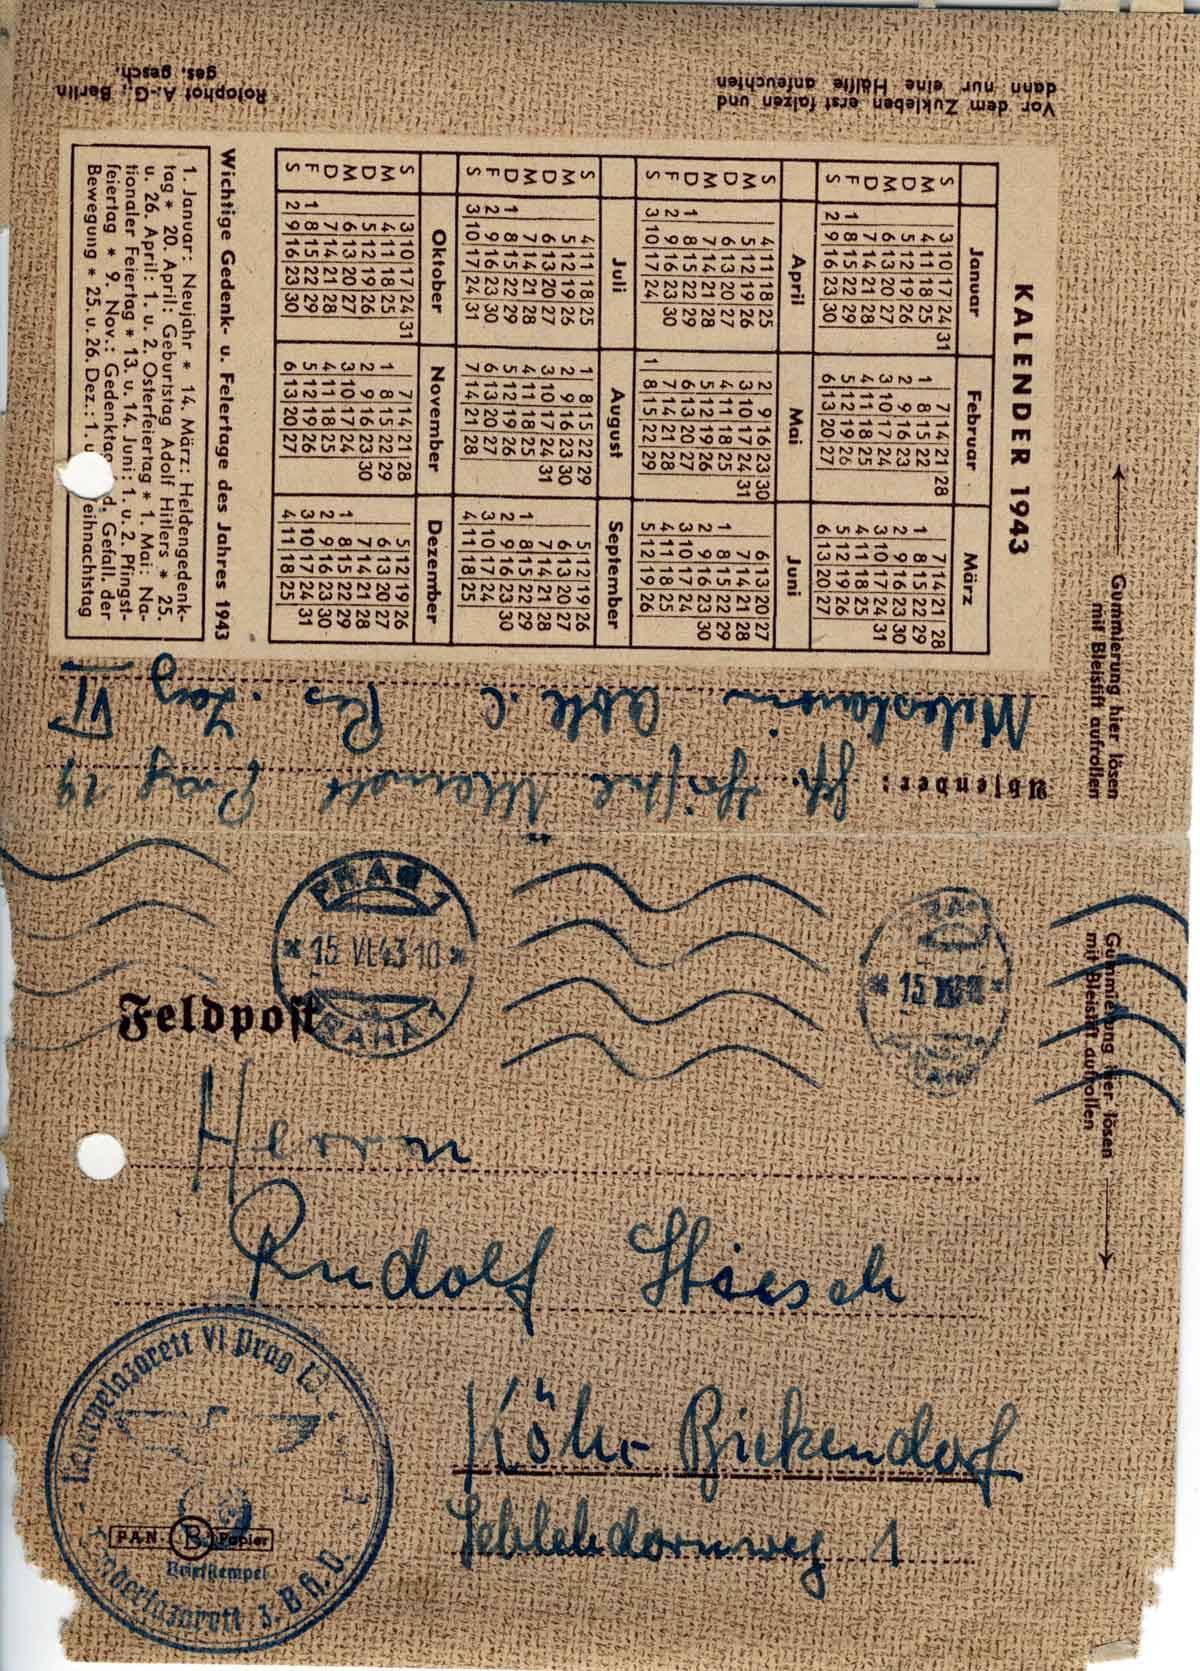 Rotophot A.-G., Berlin
ges. gesch.
Vor dem Zukleben erst falzen und
dann nur eine Hälfte anfeuchten
KALENDER 1943
Januar Februar März
S 3 10 17 24 31 7 14 21 28 7 14 21 28
M 4 11 18 25 1 8 15 22 1 8 15 22 29
D 5 12 19 26 2 9 16 23 2 9 16 23 30
M 6 13 20 27 3 10 17 24 3 10 17 24 31
D 7 14 21 28 4 11 18 25 4 11 18 25
F 1 8 15 22 29 5 12 19 26 5 12 19 26
S 2 9 16 23 30 6 13 20 27 6 13 20 27
April Mai Juni
S 4 11 18 25 2 9 16 23 30 6 13 20 27
M 5 12 19 26 3 10 17 24 31 7 14 21 28
D 6 13 20 27 4 11 18 25 1 8 15 22 29
M 7 14 21 28 5 12 19 26 2 9 16 23 30
D 1 8 15 22 29 6 13 20 27 3 10 17 24
F 2 9 16 23 30 7 14 21 28 4 11 18 25
S 3 10 17 24 1 8 15 22 29 5 12 19 26
Juli August September
S 4 11 18 25 1 8 15 22 29 5 12 19 26
M 5 12 19 26 2 9 16 23 30 6 13 20 27
D 6 13 20 27 3 10 17 24 31 7 14 21 28
M 7 14 21 28 4 11 18 25 1 8 15 22 29
D 1 8 15 22 29 5 12 19 26 2 9 16 23 30
F 2 9 16 23 30 6 13 20 27 3 10 17 24
S 3 10 17 24 31 7 14 21 28 4 11 18 25
Oktober November Dezember
S 3 10 17 24 31 7 14 21 28 5 12 19 26
M 4 11 18 25 1 8 15 22 29 6 13 20 27
D 5 12 19 26 2 9 16 23 30 7 14 21 28
M 6 13 20 27 3 10 17 24 1 8 15 22 29
D 7 14 21 28 4 11 18 25 2 9 16 23 30
F 1 8 15 22 29 5 12 19 26 3 10 17 24 31
S 2 9 16 23 30 6 13 20 27 4 11 18 25
Wichtige Gedenk- u. Feiertage des Jahres 1943
1. Januar: Neujahr * 14. März: Heldengedenk-
tag * 20. April: Geburtstag Adolf Hitlers * 25.
u. 26. April: 1. u. 2. Osterfeiertag * 1. Mai: Na-
tionaler Feiertag * 13. u. 14. Juni: 1. u. 2. Pfingst-
feiertag * 9. Nov.: Gedenktag d. Gefall. der
Bewegung * 25. u. 26. Dez.: 1. u eihnachtstag
Gummierung hier lösen
mit Bleistift aufrollen
Absender: Prag 19
Abtl. C Res. Laz. VI
PRAG 1
* 15 VI.43 10 *
PRAHA 1
15
Gummierung hier lösen
mit Bleistift aufrollen
Feldpost
Herrn
Rudolf Hoesch
Köln-Bickendorf
Schlehdornweg 1
Reservelazarett VI Prag
Sonderlazarett
PAN B. Papier
Briefstempel